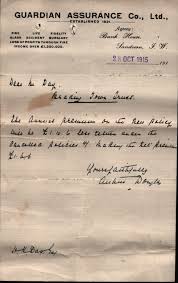 GUARDIAN ASSURANCE Co., Ltd.,
ESTABLISHED 1821.
FIRE LIFE FIDELITY
GLASS ACCIDENT BURGLARY
LOSS OF PROFITS THROUGH FIRE
INCOME OVER £1,250,000.
Agency:
Bank House,
28 OCT 1915
Dear Mr Day,
Reading Town
The Annual premium on the new policy
will be £1.10.6 less return under the
cancelled policies making the net premium
£1.4.6
Yours faithfully